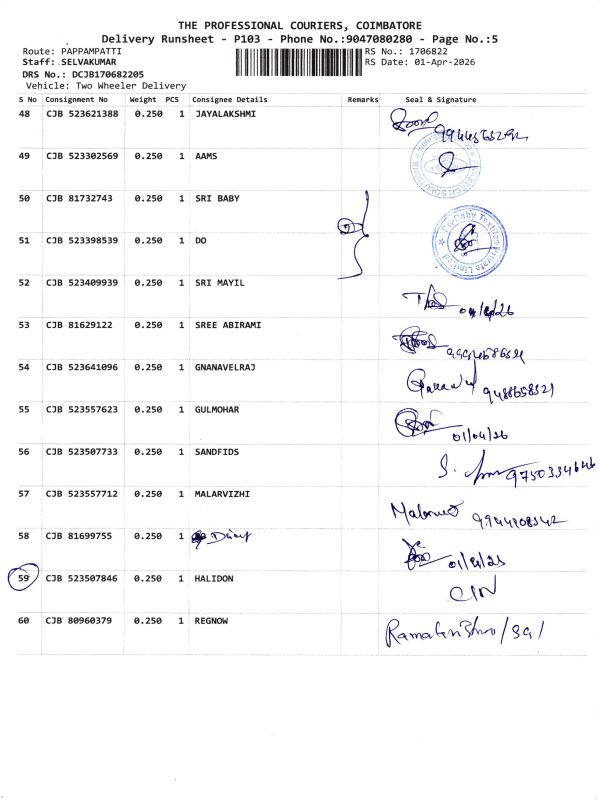 THE PROFESSIONAL COURIERS, COIMBATORE
Delivery Runsheet - P103 - Phone No.:9047080280 - Page No.:5
Route: PAPPAMPATTI RS No.: 1706822
Staff: SELVAKUMAR RS Date: 01-Apr-2026
DRS No.: DCJB170682205
Vehicle: Two Wheeler Delivery
S No Consignment No Weight PCS Consignee Details Remarks Seal & Signature
48 CJB 523621388 0.250 1 JAYALAKSHMI
49 CJB 523302569 0.250 1 AAMS
50 CJB 81732743 0.250 1 SRI BABY
51 CJB 523398539 0.250 1 DO
52 CJB 523409939 0.250 1 SRI MAYIL
53 CJB 81629122 0.250 1 SREE ABIRAMI
54 CJB 523641096 0.250 1 GNANAVELRAJ 9488658321
55 CJB 523557623 0.250 1 GULMOHAR 01/04/26
56 CJB 523507733 0.250 1 SANDFIDS 9750334646
57 CJB 523557712 0.250 1 MALARVIZHI 9944108342
58 CJB 81699755 0.250 1
59 CJB 523507846 0.250 1 HALIDON
60 CJB 80960379 0.250 1 REGNOW